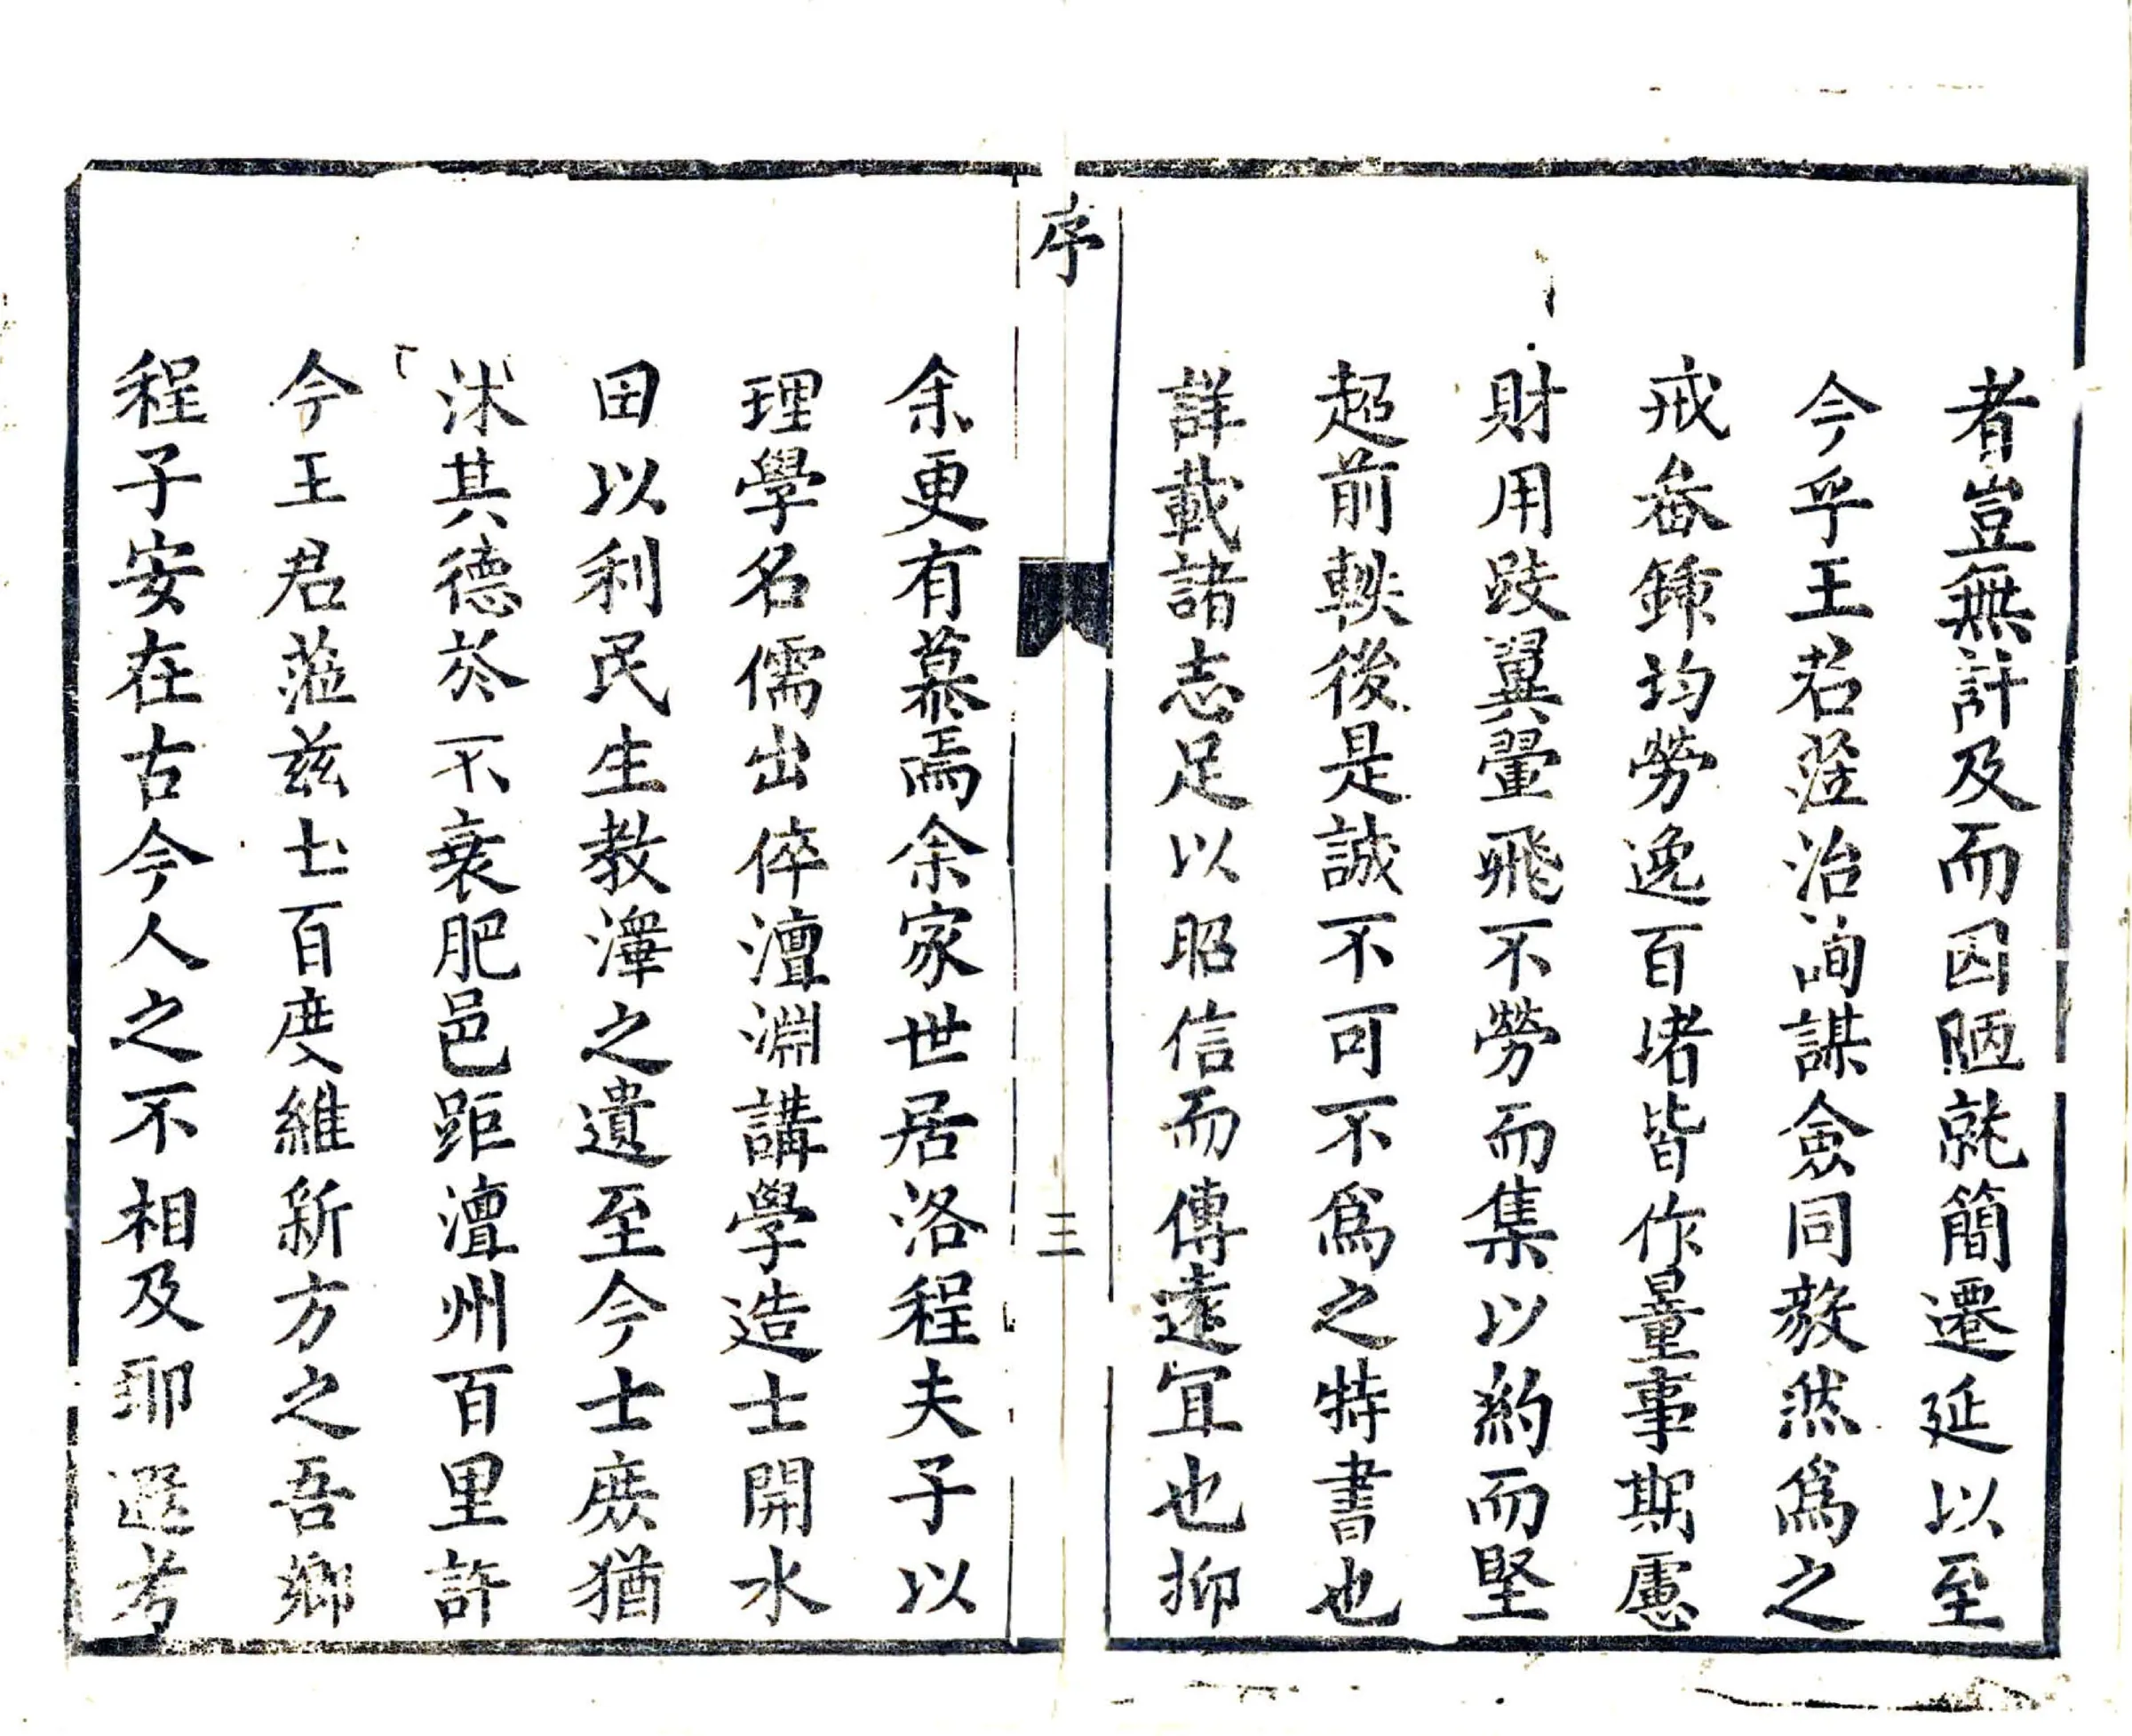 者豈無計及而因陋就簡遷延以至
今乎王君蒞治詢謀僉同毅然爲之
戒畚鍤均勞逸百堵皆作量事期慮
財用跂翼翬飛不勞而集以約而堅
超前軼後是誠不可不爲之特書也
詳載諸志足以昭信而傳遠宜也抑
序
三
余更有慕焉余家世居洛程夫子以
理學名儒出倅澶淵講學造士開水
田以利民生教澤之遺至今士庶猶
沐其德於不衰肥邑距澶州百里許
今王君蒞兹土百度維新方之吾鄉
程子安在古今人之不相及耶遐考